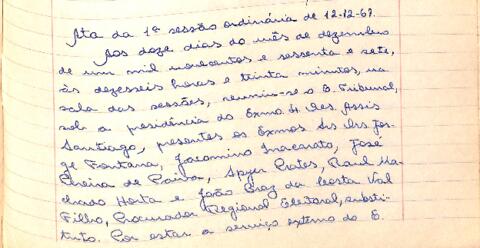 Ata da 1ª sessão ordinária de 12-12-67.
Aos doze dias do mês de dezembro
de um mil novecentos e sessenta e sete,
às dezesseis horas e trinta minutos, na
sala das sessões, reuniu-se o E. Tribunal,
sob a presidência do Exmo. Des. Assis
Santiago, presentes os Exmos. Srs. Drs. Jor-
ge Fontana, Jacomino Inacarato, José
Pereira de Paiva, Spyer Prates, Raul Ma-
chado Horta e João Braz da Costa Val
Filho, Procurador Regional Eleitoral, substi-
tuto. Por estar a serviço externo do E.